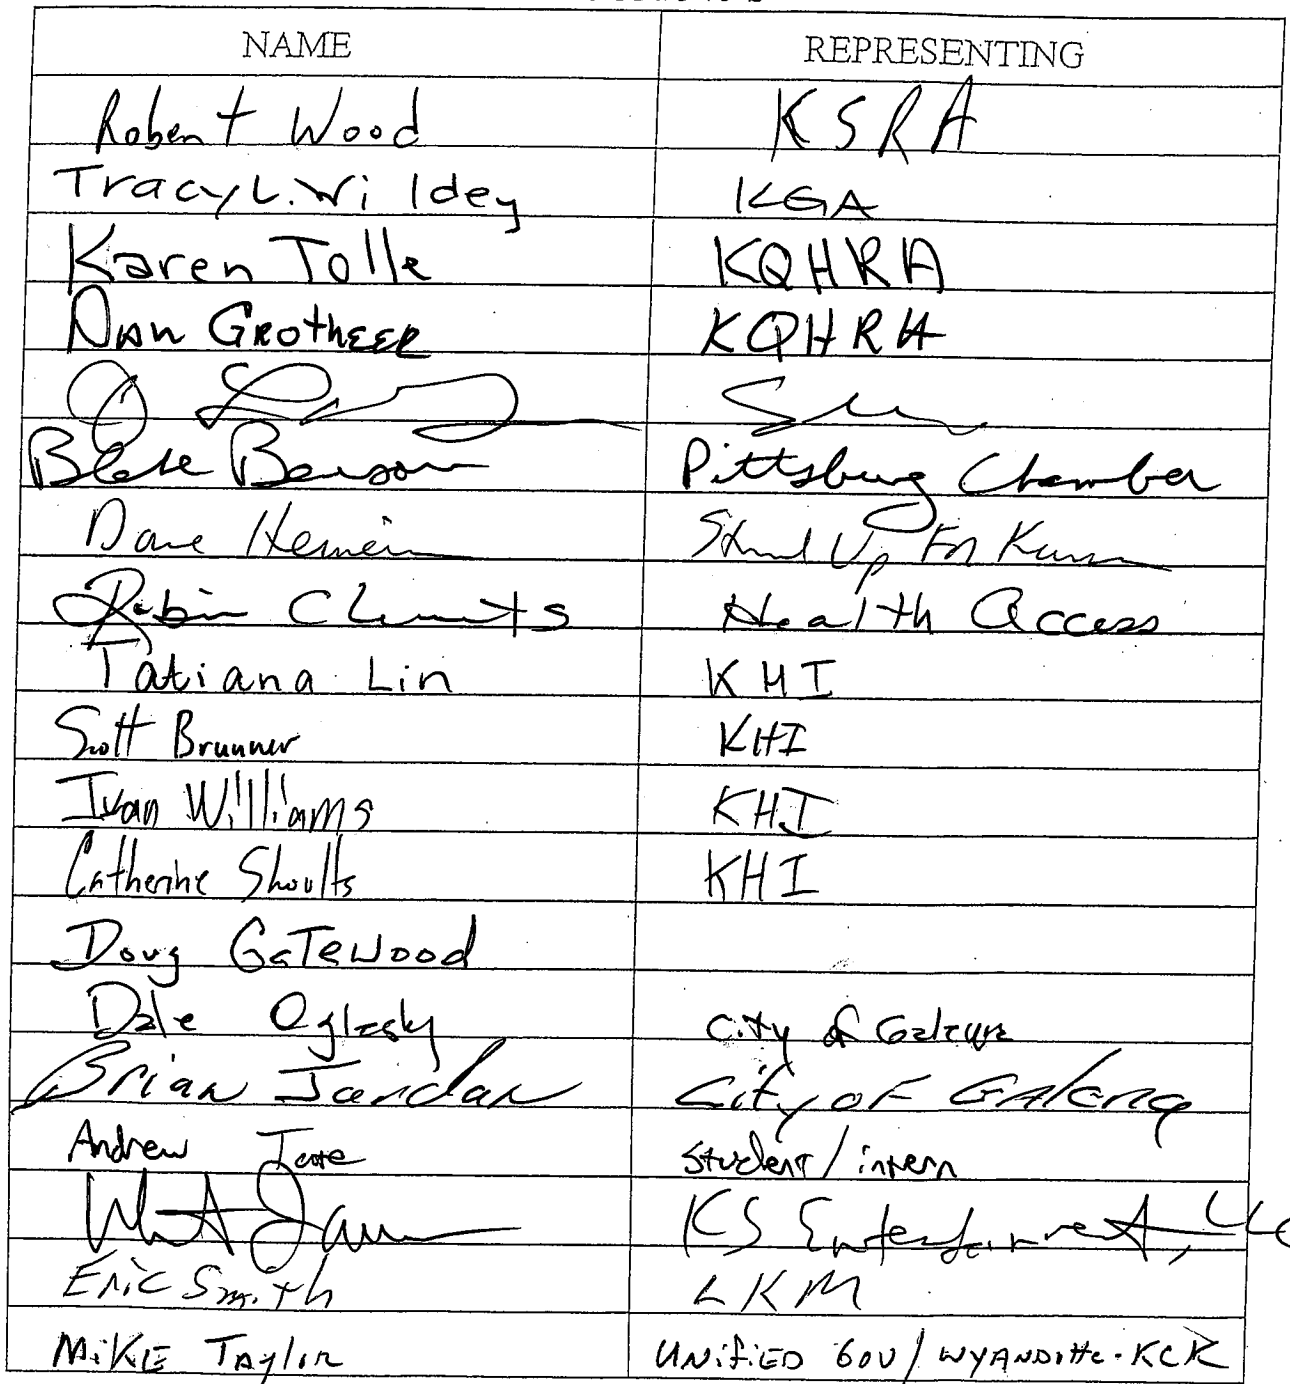 NAME REPRESENTING
Robert Wood KSRA
Tracy L. Wildey KGA
Karen Tolle KQHRA
Dan Grotheer KQHRA
Blake Benson Pittsburg Chamber
Dave Stand Up For Kansas
Robin Clements Health Access
Tatiana Lin KHI
Scott Brunner KHI
Ivan Williams KHI
Catherine Shoults KHI
Doug Gatewood
Dale Oglesby City of Galena
Brian Jordan City of Galena
Andrew student/intern
KS Entertainment, LLC
Eric Smith LKM
Mike Taylor Unified Gov/Wyandotte-KCK